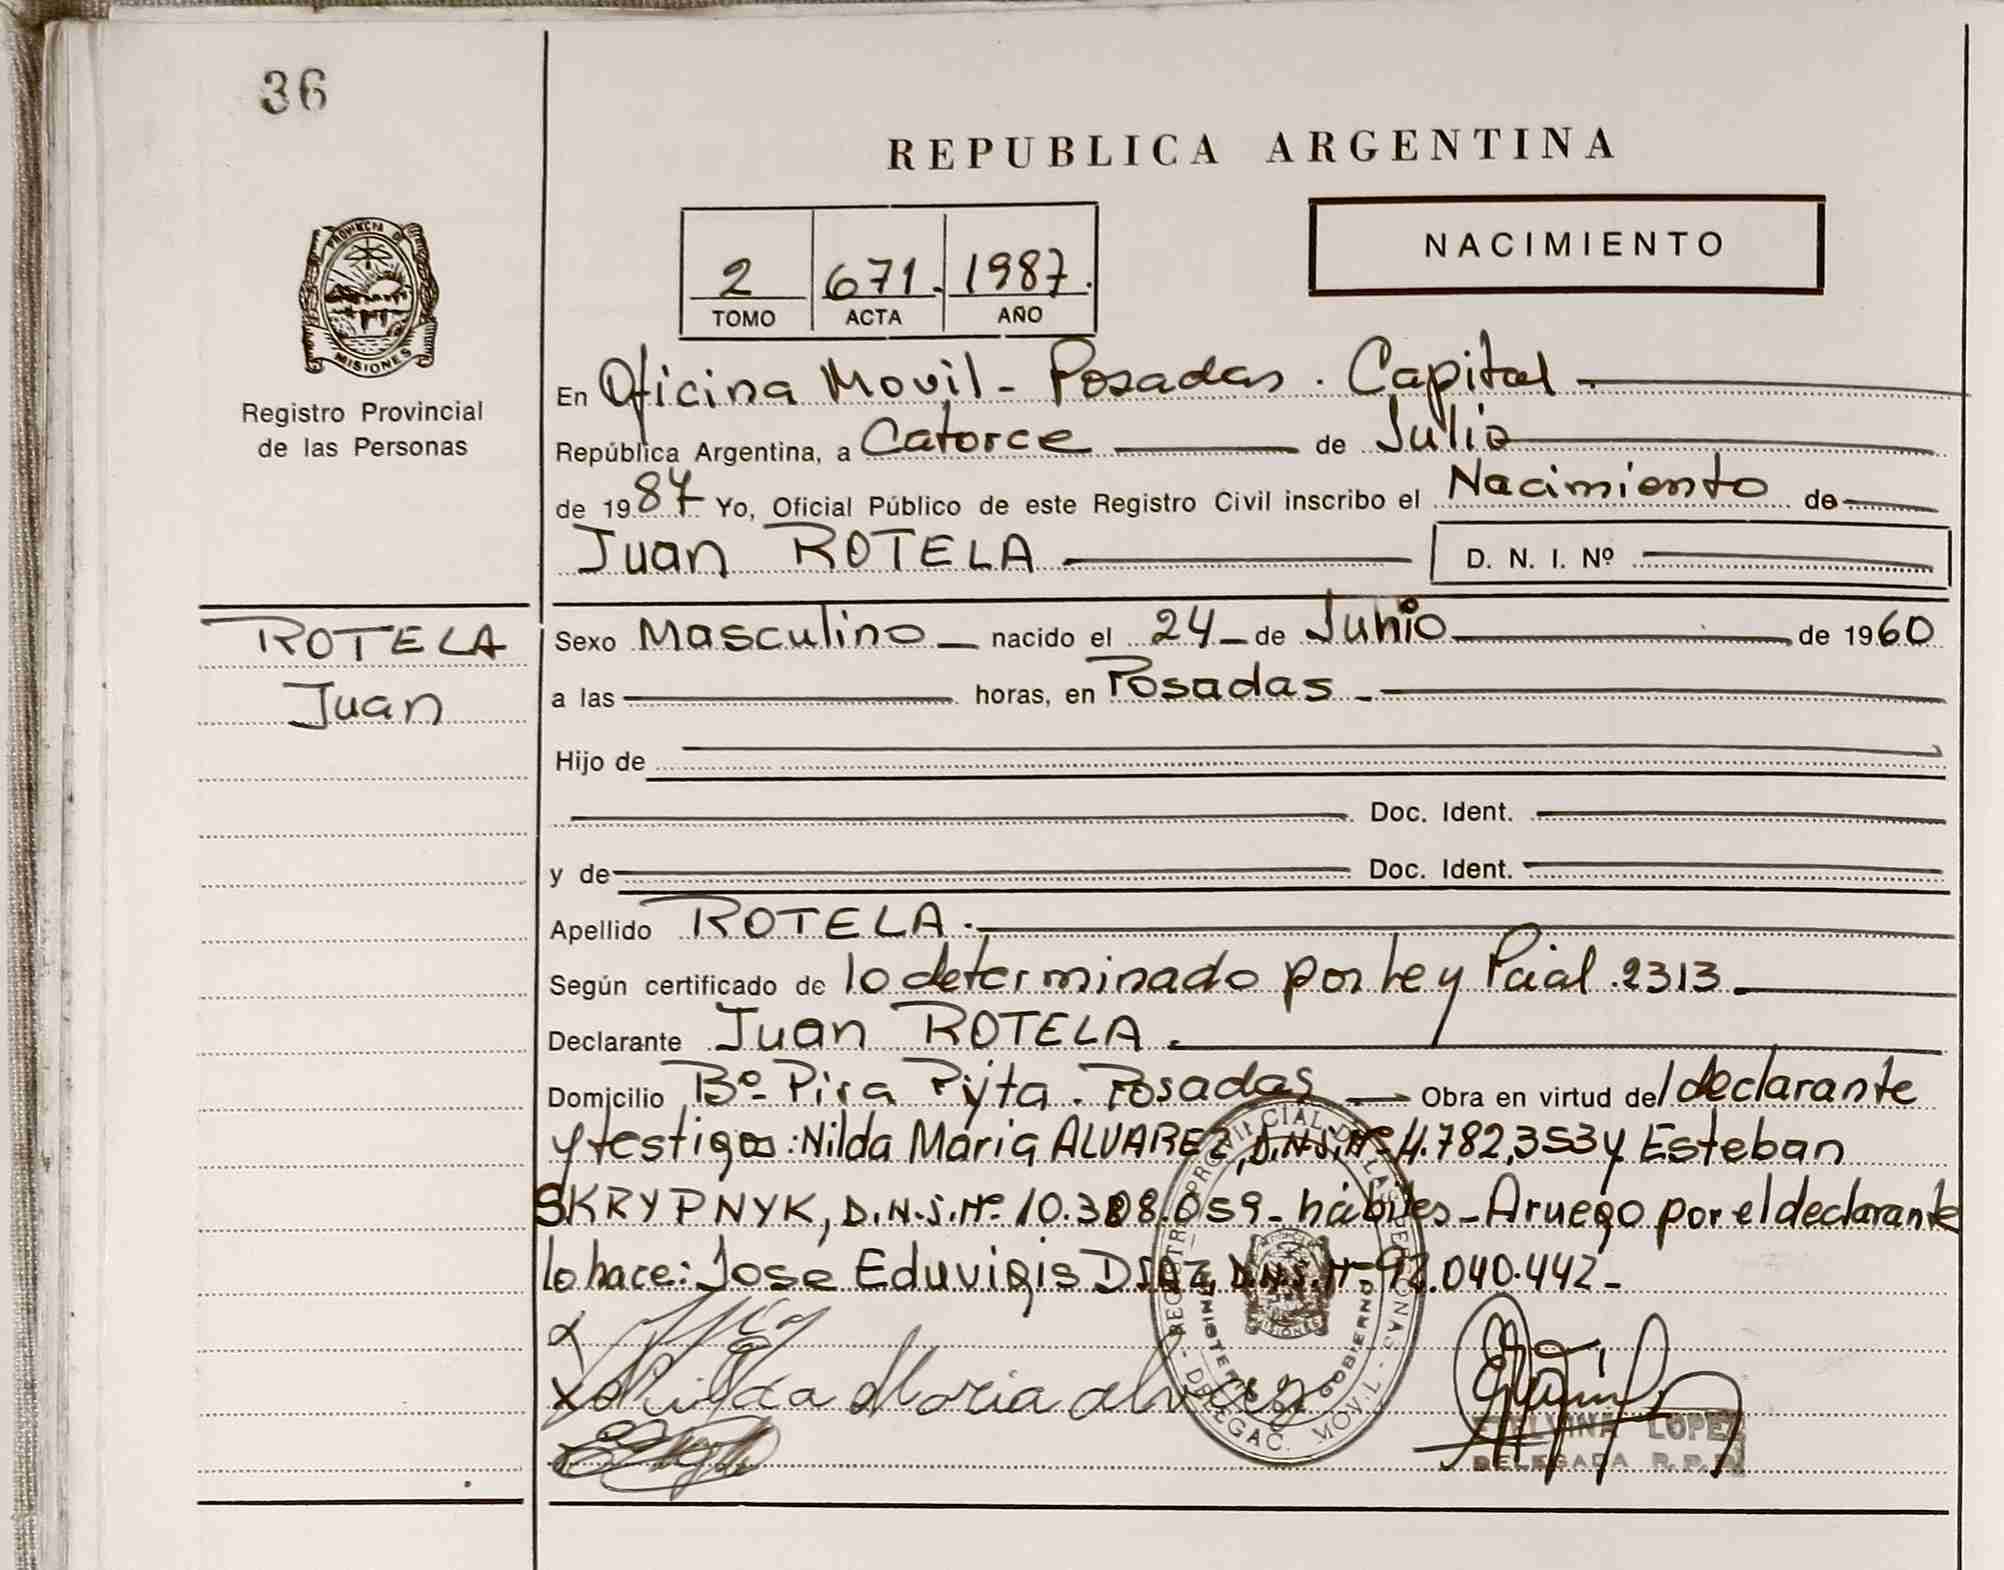 36
REPUBLICA ARGENTINA
NACIMIENTO
2 671. 1987.
TOMO ACTA AÑO
PROVINCIA DE MISIONES
Registro Provincial
de las Personas
En Oficina Movil - Posadas. Capital
República Argentina, a Catorce de Julio
de 1987 Yo, Oficial Público de este Registro Civil inscribo el Nacimiento de
Juan ROTELA D. N. I. Nº
ROTELA
Juan
Sexo Masculino nacido el 24 de Junio de 1960
a las horas, en Posadas
Hijo de
Doc. Ident.
y de Doc. Ident.
Apellido ROTELA.
Según certificado de lo determinado por Ley Pcial. 2313
Declarante Juan ROTELA.
Domicilio Bº Pira Pyta. Posadas Obra en virtud del declarante
y testigos: Nilda Maria ALVAREZ, D.N.I. Nº 4.782,353 y Esteban
SKRYPNYK, D.N.I. Nº 10.308.059 - hábiles - A ruego por el declarante
lo hace: Jose Eduvigis DIAZ, D.N.I. Nº 92.040.442 -
Nilda Maria Alvarez
REGISTRO PROVINCIAL DE LAS PERSONAS - DELEGAC. MOVIL -
MINISTERIO GOBIERNO
MISIONES
LOPEZ
DELEGADA R.P.P.